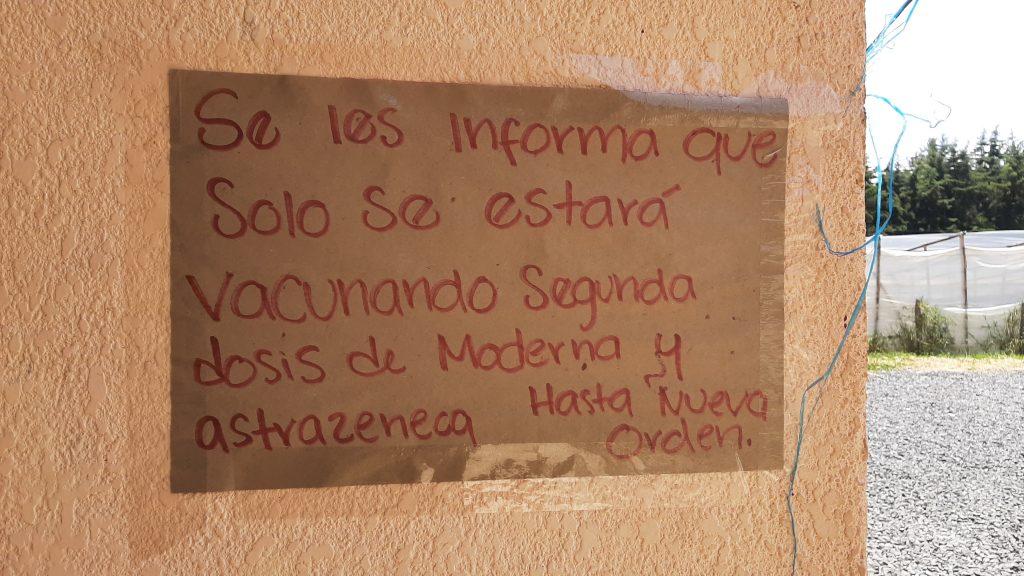 Se les informa que
Solo se estará
Vacunando Segunda
dosis de Moderna y
astrazeneca Hasta Nueva
Orden.